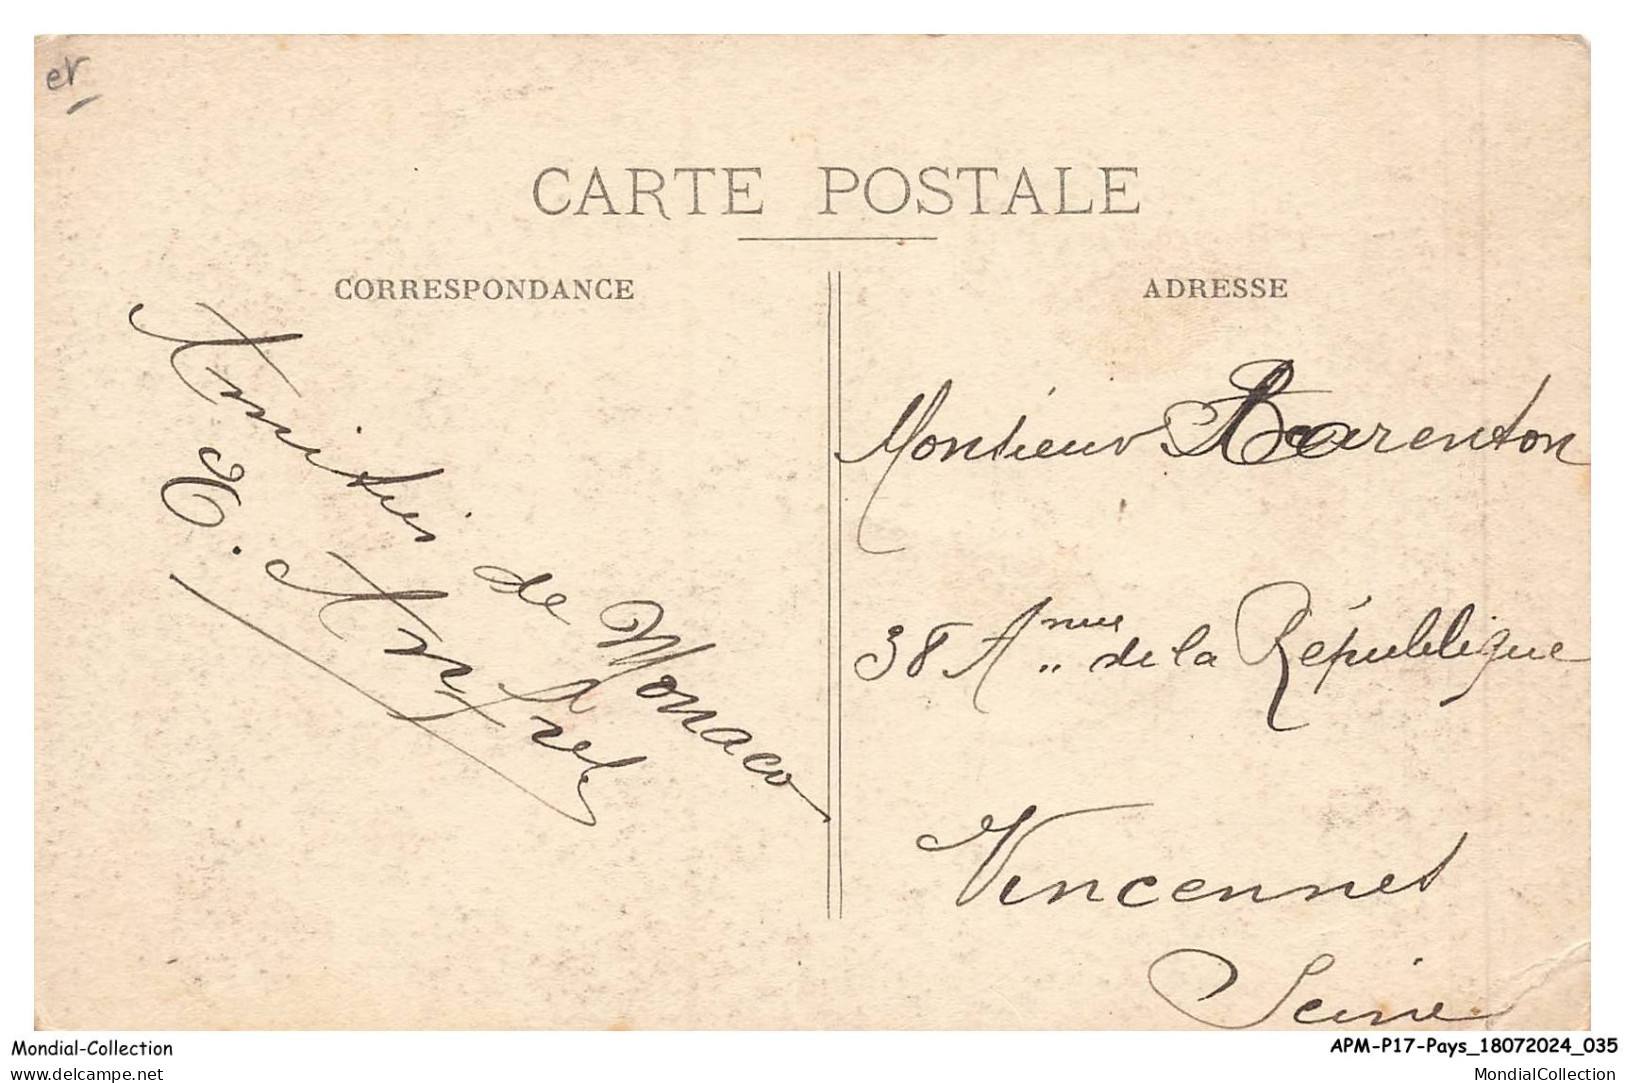 er
CARTE POSTALE
CORRESPONDANCE
Amitiés de Monaco
ADRESSE
Monsieur Barenton
38 Anue de la République
Vincennes
Seine
Mondial-Collection
www.delcampe.net
APM-P17-Pays_18072024_035
MondialCollection